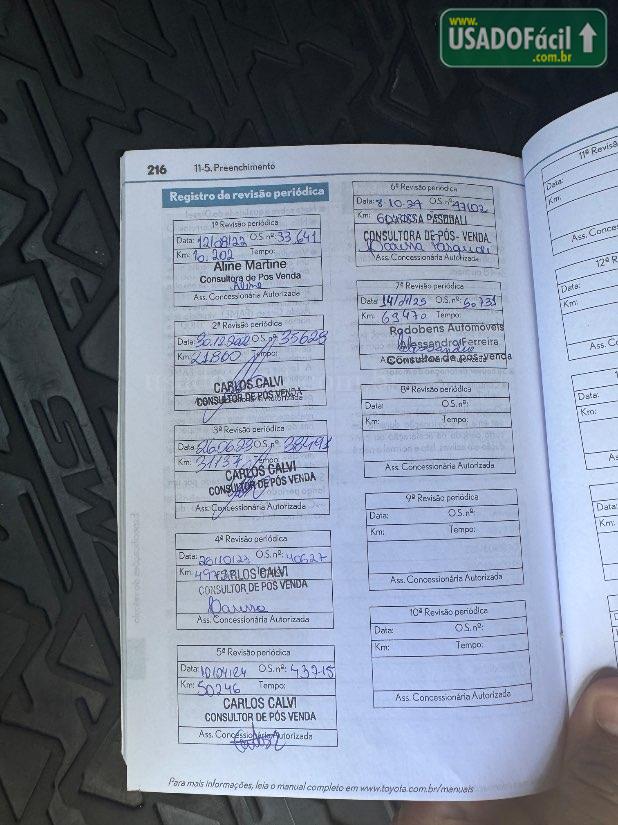 www.
USADOFácil
.com.br
216 11-5. Preenchimento
Registro da revisão periódica
1ª Revisão periódica
Data: 12/08/22 O.S. nº: 33.641
Km: 10.202 Tempo:
Aline Martine
Consultora de Pós Venda
Aline
Ass. Concessionária Autorizada
2ª Revisão periódica
Data: 30.12.2022 O.S. nº: 35629
Km: 21800 Tempo:
CARLOS CALVI
CONSULTOR DE PÓS VENDA
Ass. Concessionária Autorizada
3ª Revisão periódica
Data: O.S. nº:
Km: 31737 Tempo:
CARLOS CALVI
CONSULTOR DE PÓS VENDA
Ass. Concessionária Autorizada
4ª Revisão periódica
Data: 26/10/23 O.S. nº: 40627
Km: Tempo:
CARLOS CALVI
CONSULTOR DE PÓS VENDA
Ass. Concessionária Autorizada
5ª Revisão periódica
Data: 10/04/24 O.S. nº: 43715
Km: 50246 Tempo:
CARLOS CALVI
CONSULTOR DE PÓS VENDA
Ass. Concessionária Autorizada
6ª Revisão periódica
Data: 8.10.24 O.S. nº: 47102
Km:
CONSULTORA DE PÓS- VENDA
Ass. Concessionária Autorizada
7ª Revisão periódica
Data: O.S. nº: 50.731
Km: 69470 Tempo:
Rodobens Automóveis
Alessandro Ferreira
Consultor de pós-venda
Ass. Concessionária Autorizada
8ª Revisão periódica
Data: O.S. nº:
Km: Tempo:
Ass. Concessionária Autorizada
9ª Revisão periódica
Data: O.S. nº:
Km: Tempo:
Ass. Concessionária Autorizada
10ª Revisão periódica
Data: O.S. nº:
Km: Tempo:
Ass. Concessionária Autorizada
Para mais informações, leia o manual completo em www.toyota.com.br/manuais
11ª Revisão
Data:
Km:
Ass. Conce
12ª R
Data:
Km:
Ass. Con
Data:
Km:
Ass. C
Data
Km: